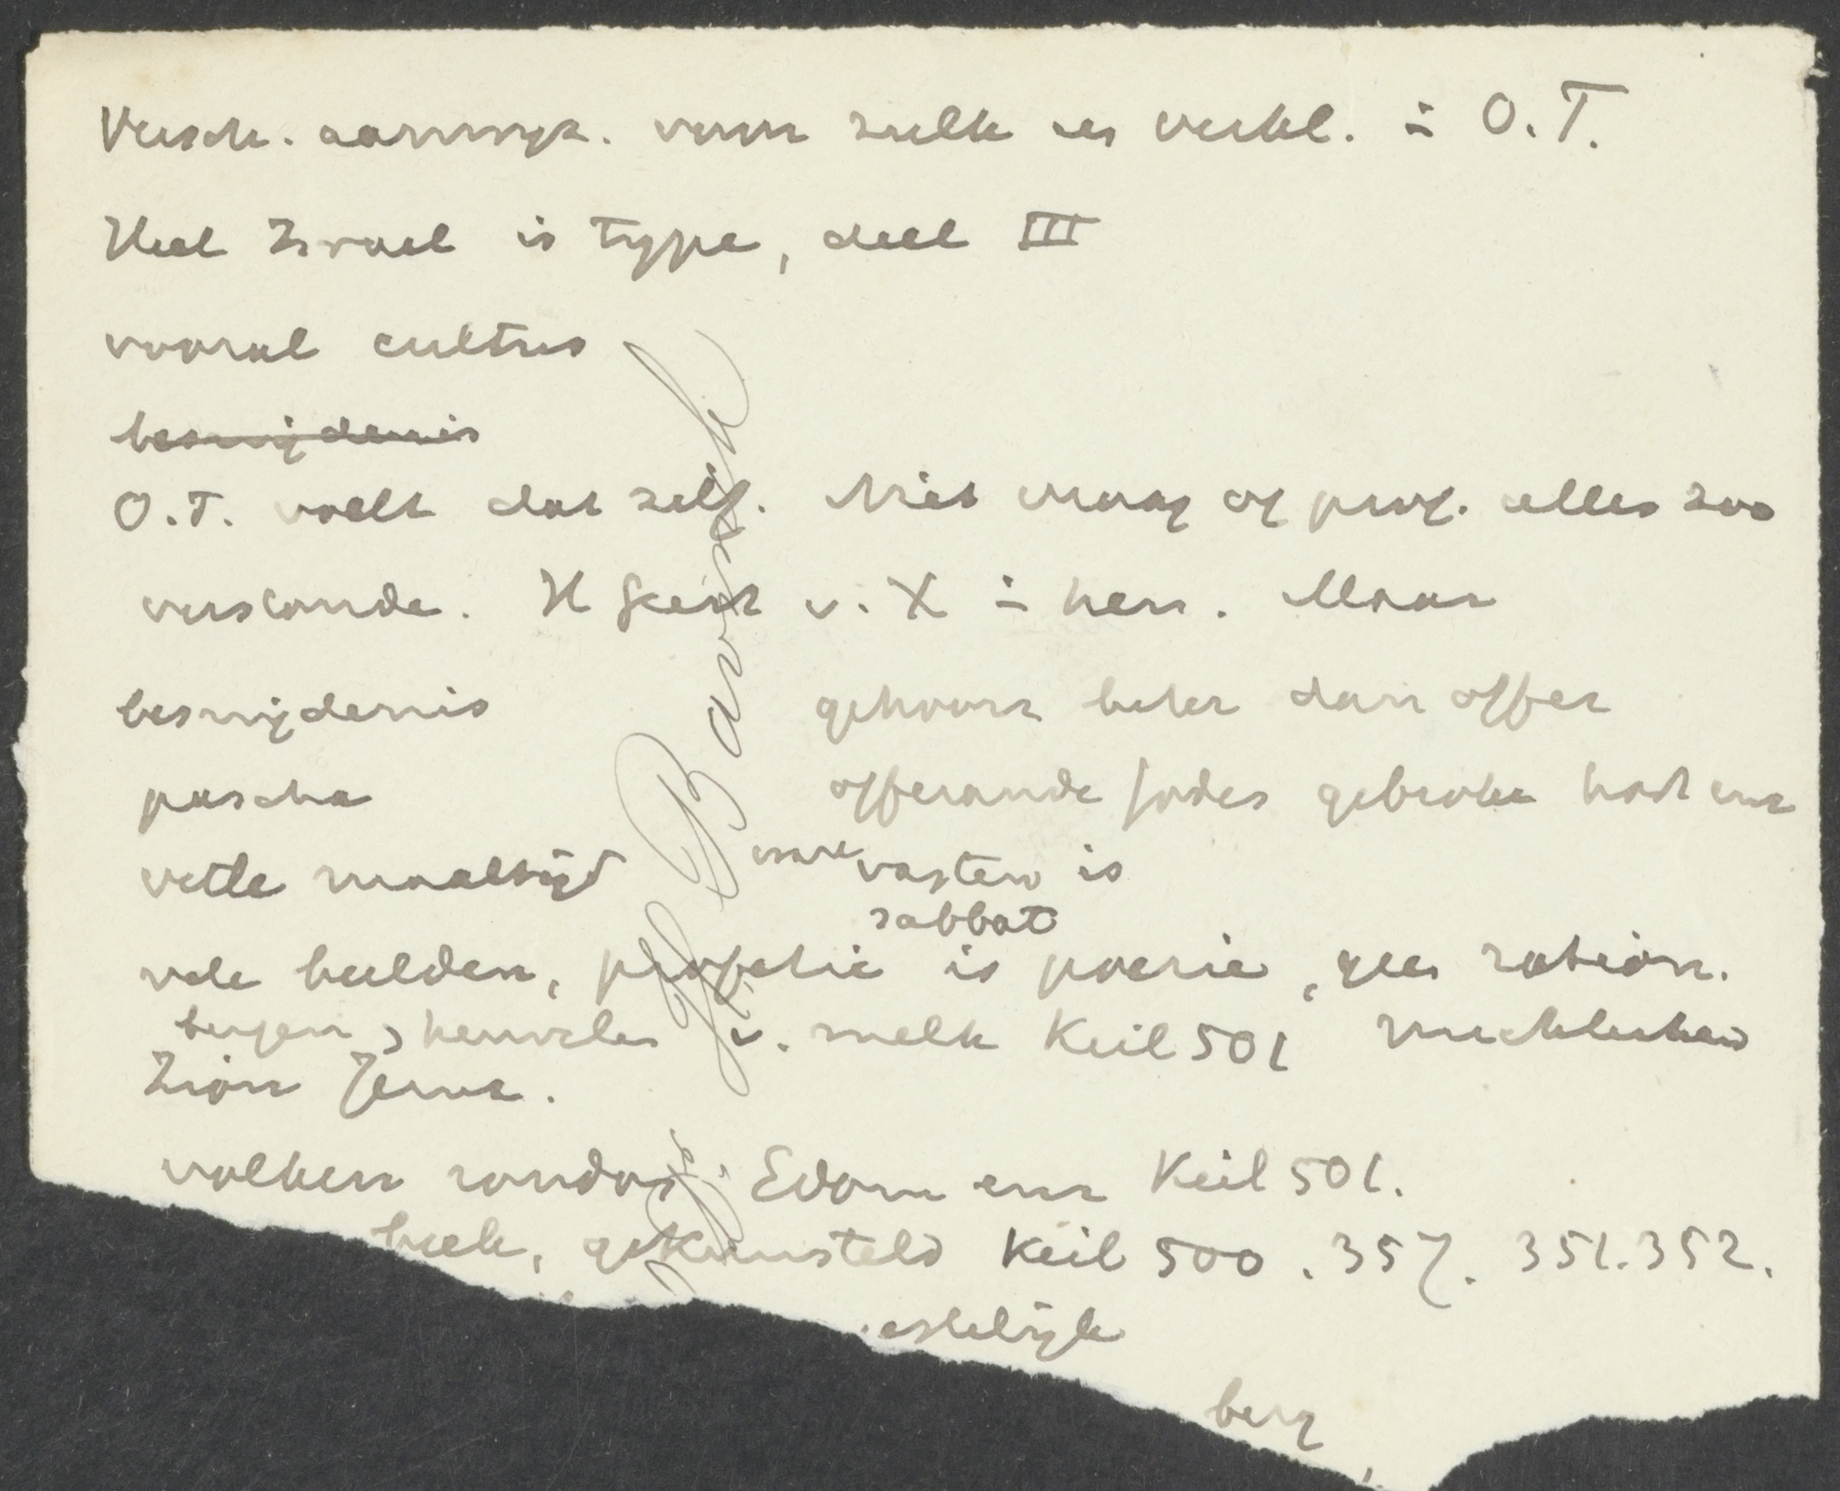 Versch. aanwijz. voor zulk een verkl. in O.T.
Heel Israel is type, deel III
vooral cultus
besnijdenis
O.T. voelt dat zelf. Niet vraag of prof. alles zoo
verstonde. H Geest v. X in hen. Maar
besnijdenis gehoorz beter dan offer
pascha offerande Godes gebroken hart enz
vette maaltijd ware vasten is
sabbat
vele beelden, profetie is poezie, geen
bergen, heuvelen v. melk Keil 501 vruchtbaarheid
Zion Jeruz.
volken rondom, Edom enz Keil 501.
gekunsteld Keil 500. 357. 351. 352.
berg
H Bavinck